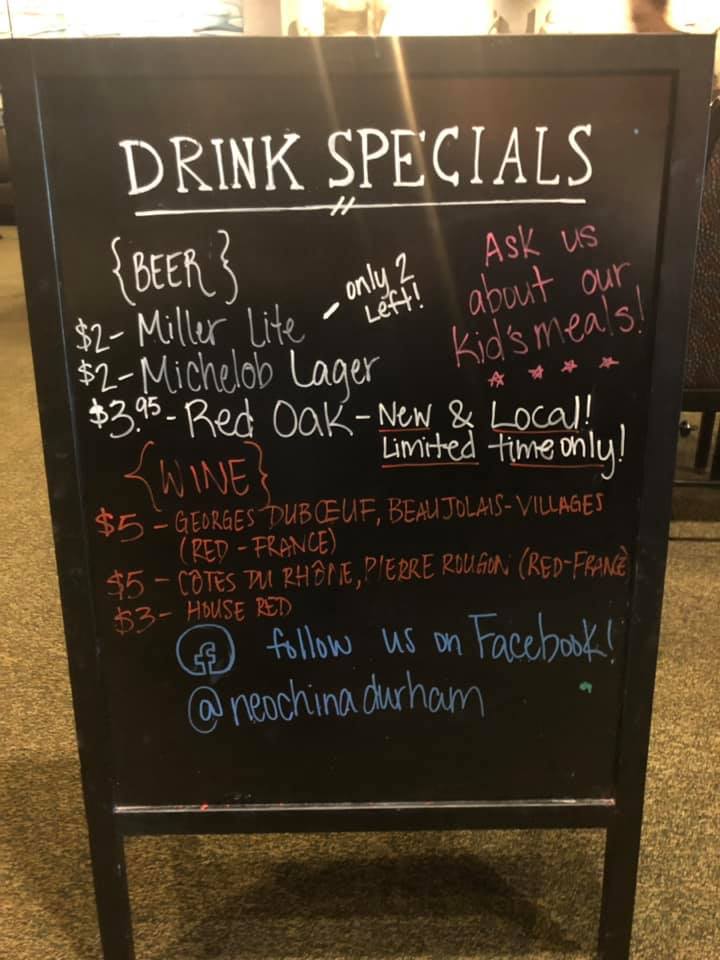 DRINK SPECIALS
{BEER}
$2- Miller Lite - only 2 Left!
$2- Michelob Lager
$3.95- Red Oak - New & Local!
Limited time only!
Ask us
about our
Kid's meals!
{WINE}
$5 - GEORGES DUBŒUF, BEAUJOLAIS-VILLAGES
(RED - FRANCE)
$5 - CÔTES DU RHÔNE, PIERRE ROUGON (RED-FRANCE
$3- HOUSE RED
f follow us on Facebook!
@neochinadurham